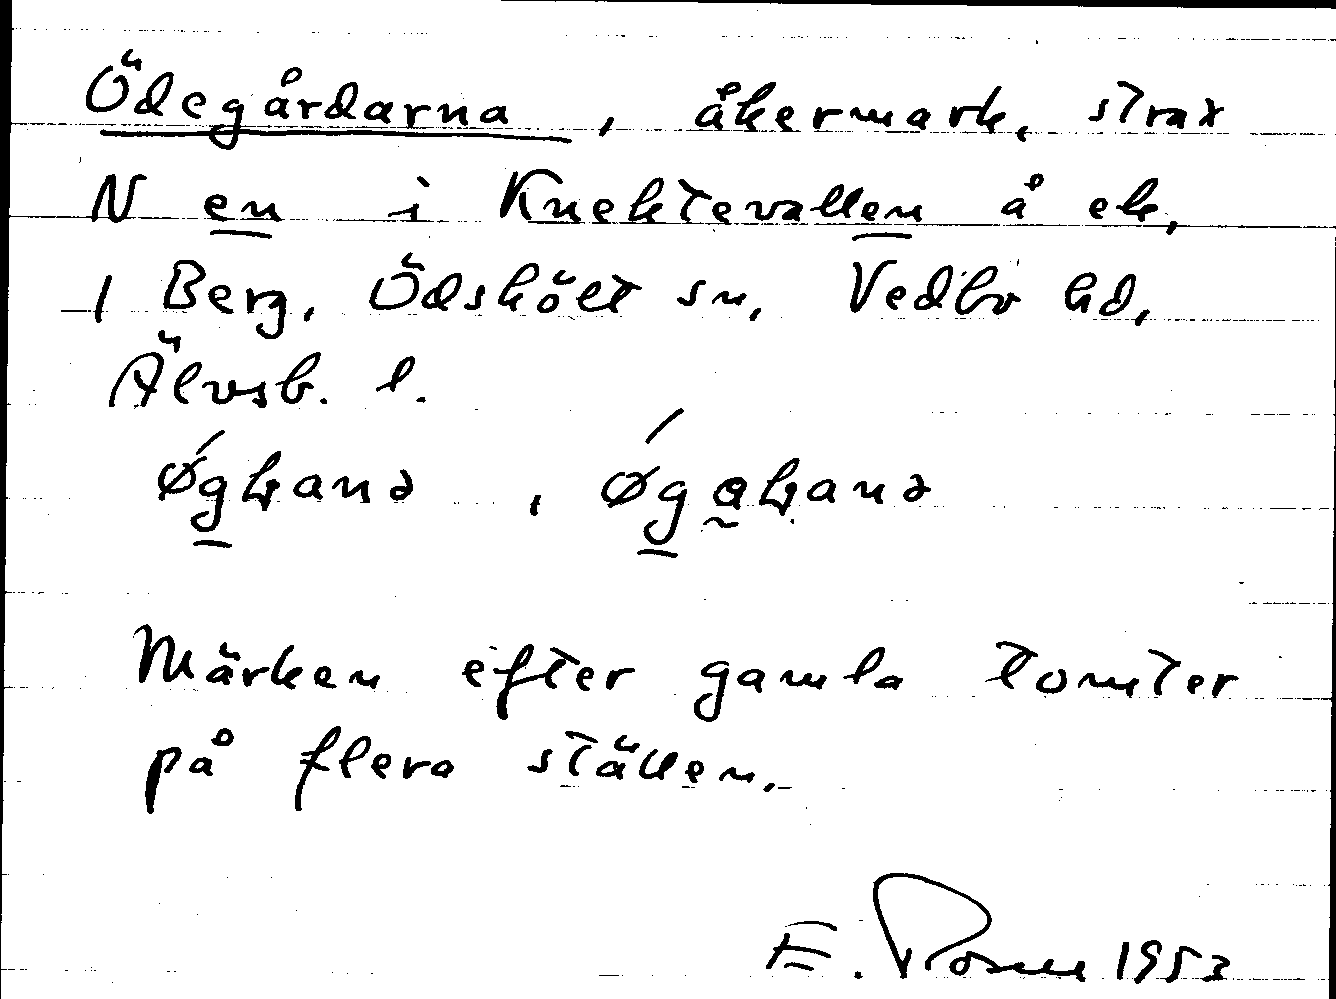 Ödegårdarna, åkermark, strax
N en i Knektevallen å ek.
1 Berg, Ödskölt sn, Vedbo hd,
Älvsb. l.
Märken efter gamla tomter
på flera ställen.
E. 1953